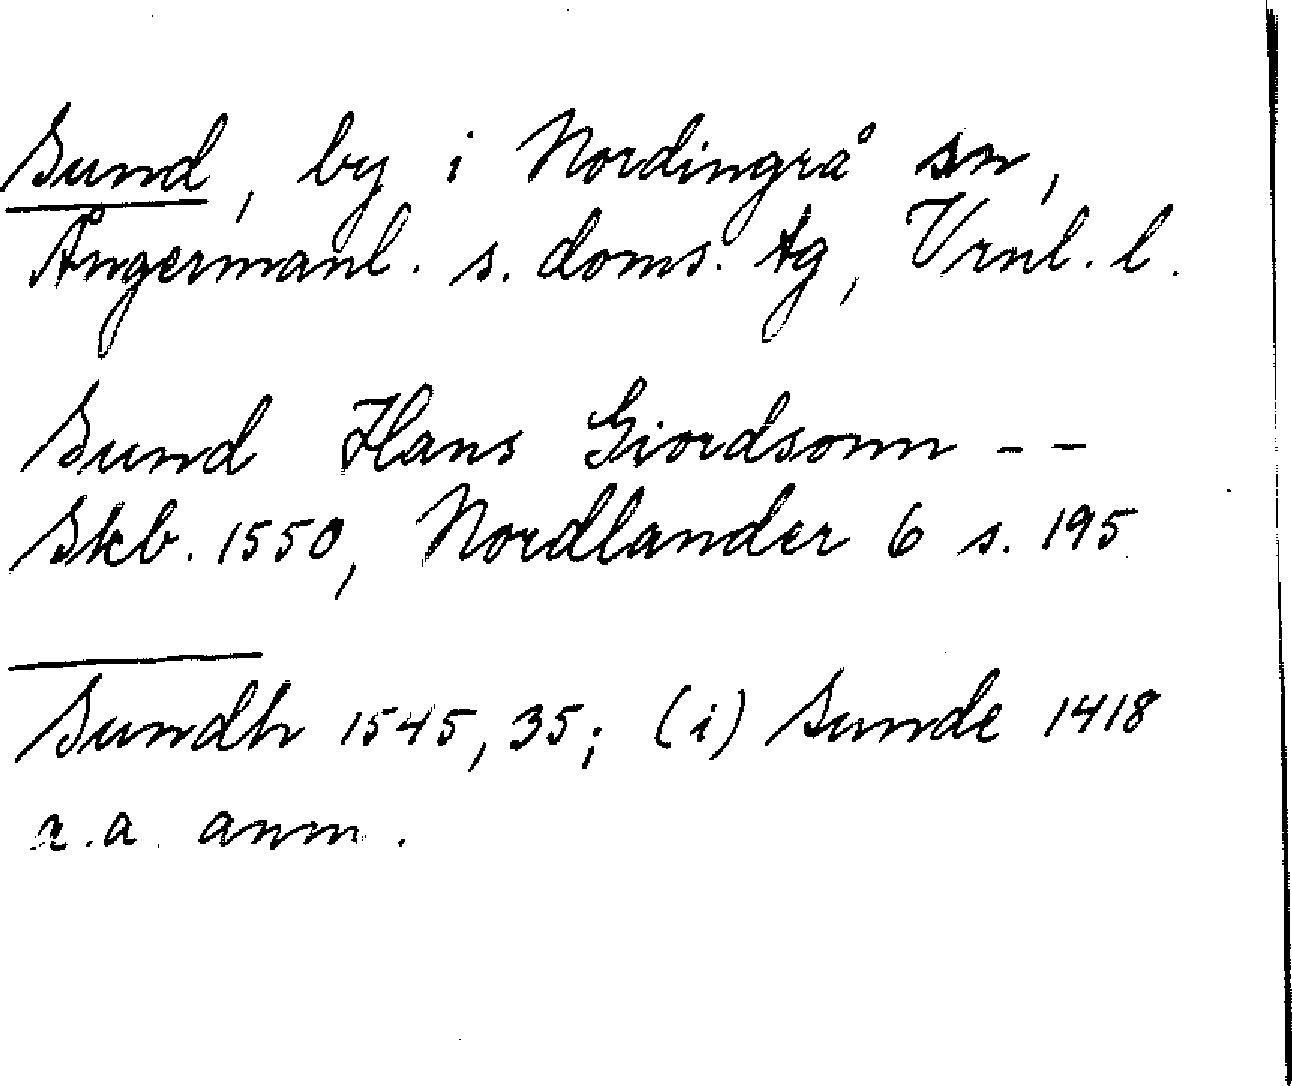 Sund, by i Nordingrå sn,
Ångermanl. s. doms. tg, Vrnl. l.
Sund Hans Giordsonn --
Skb. 1550, Nordlander 6 s. 195
Sundh 1545, 35; (i) Sunde 1418
a.a. anm.